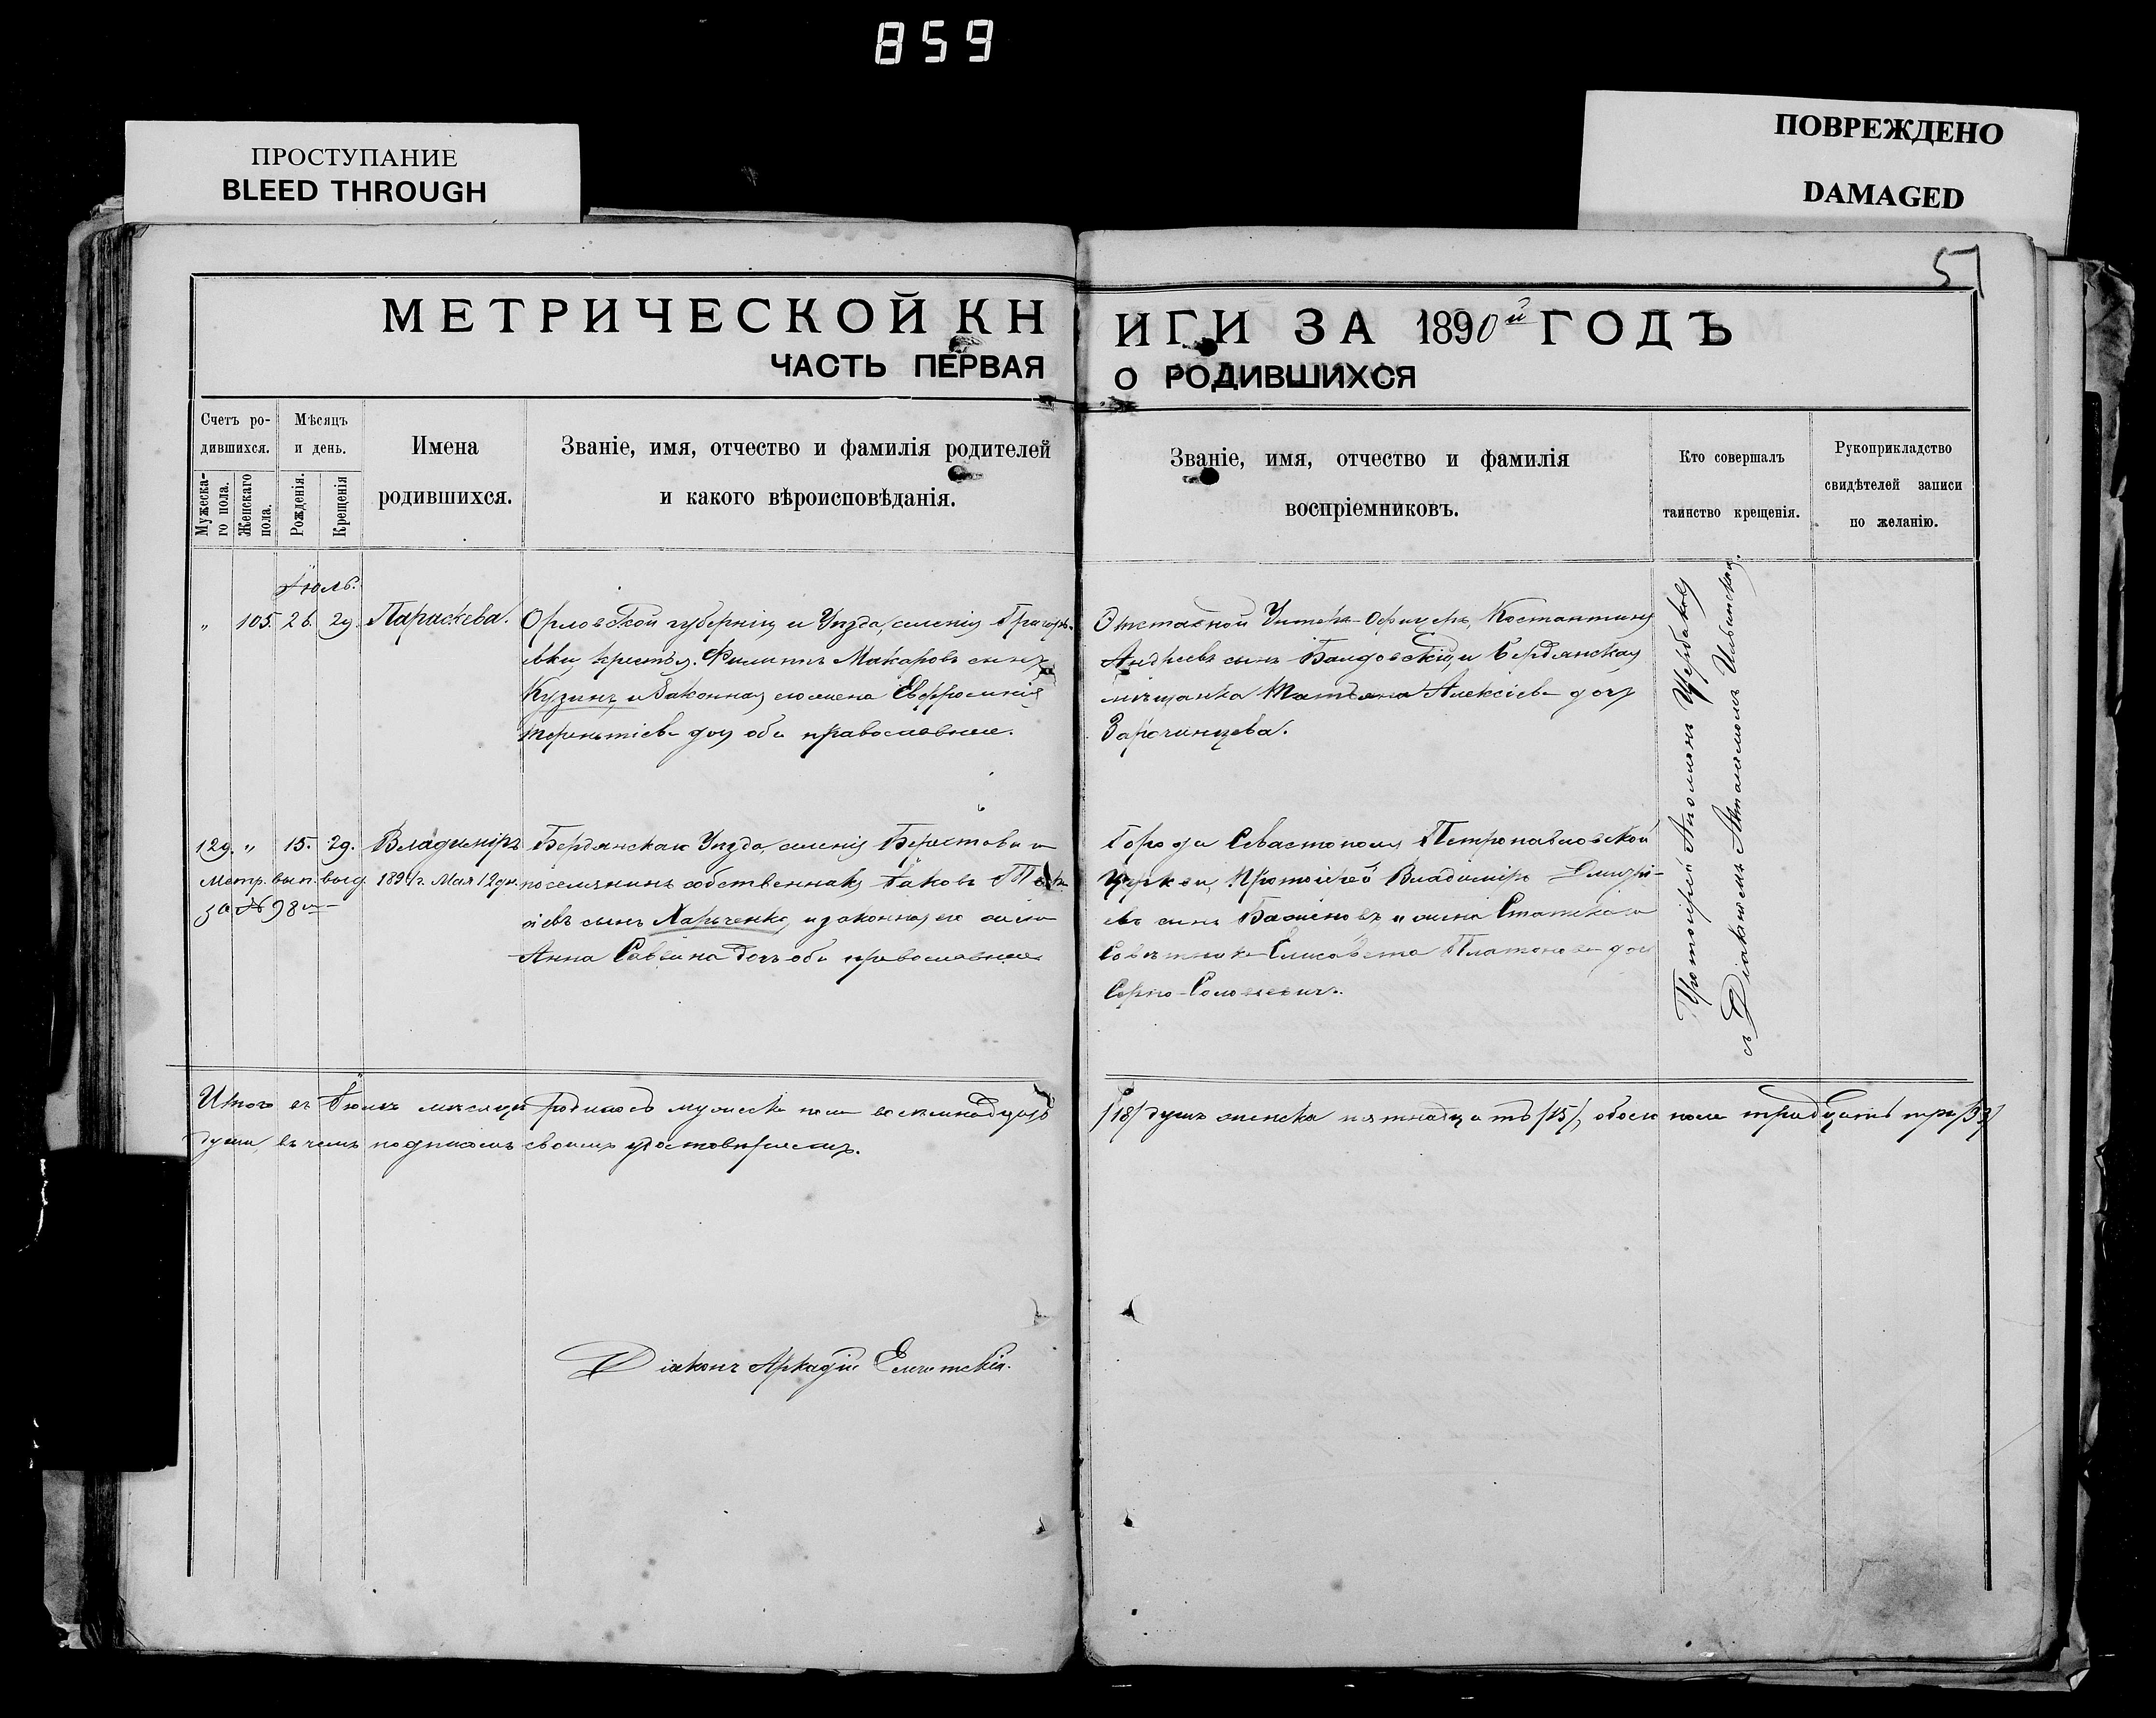 859
ПРОСТУПАНИЕ
BLEED THROUGH
ПОВРЕЖДЕНО
DAMAGED
5
МЕТРИЧЕСКОЙ КНИГИ ЗА 1890й ГОДЪ
ЧАСТЬ ПЕРВАЯ О РОДИВШИХСЯ
Счетъ ро-
дившихся.
Мужеска-
го пола.
Женскаго
пола.
Мѣсяцъ
и день.
Рожденія.
Крещенія
Имена
родившихся.
Званіе, имя, отчество и фамилія родителей
и какого вѣроисповѣданія.
Званіе, имя, отчество и фамилія
воспріемниковъ.
Кто совершалъ
таинство крещенія.
Рукоприкладство
свидѣтелей записи
по желанію.
Іюль.
„ 105. 26. 29. Параскева.
Орловской губерніи и Уѣзда, селенія Григорь-
евки крестьян. Филиппъ Макаровъ сынъ
Кузинъ, и законная его жена Евфросинія
Терентіева дочь оба православные.
Отставной Унтеръ-Офицеръ, Костантинъ
Андреевъ сынъ и Бердянская
мѣщанка Татьяна Алексіева дочь
129. „ 15. 29. Владиміръ
Метр. вып. выд. 1891г. Мая 12 дня
за № 98
Бердянскаго Уѣзда, селенія Берестоваго
поселянинъ собственникъ Іаковъ
сынъ Харченко, и законная его жена
Анна Саввина дочь оба православные
Города Севастополя Петропавловской
Церкви, Протоіерей Владиміръ Димитрі-
евъ сынъ Баженовъ и жена Статскаго
Совѣтника Елисавета Платонова дочь
Серно-Соловьевичъ.
Протоіерей Аполлонъ Щербаковъ
съ Діакономъ
Итого въ Іюлѣ мѣсяцѣ родилось мужеска пола восемнадцать /18/ душъ женска пятнадцать /15/, обоего пола тридцать три /33/
души, въ чемъ подписомъ своимъ удостовѣряемъ.
Діаконъ Аркадій